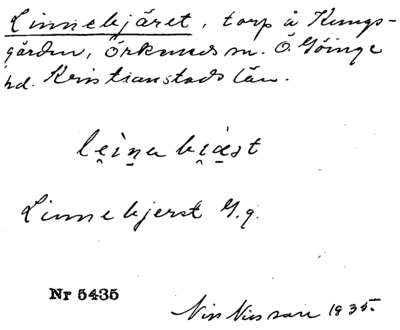 Linnebjäret, torp å Kungs-
gården, Örkeneds sn. Ö. Göinge
hd. Kristianstads län.
Linnebjerst G.q.
Nr 5435
Nils Nilsson 1935.